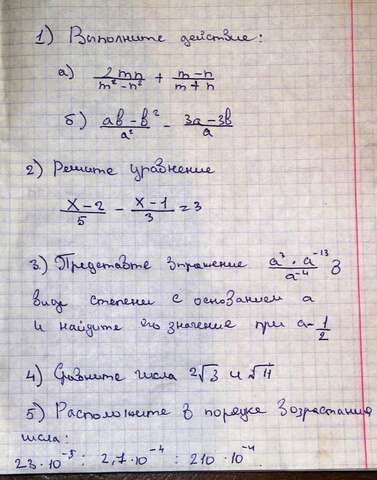 1) Выполните действие:
а) 2mn/(m²-n²) + (m-n)/(m+n)
б) (ab-b²)/a² - (3a-3b)/a
2) Решите уравнение
(x-2)/5 - (x-1)/3 = 3
3) Представте выражение (a³·a⁻¹³)/a⁻⁴ в
виде степени с основанием a
и найдите его значение при a-1/2
4) Сравните числа 2√3 и √11
5) Расположите в порядке возрастания
числа:
23·10⁻⁵ : 2,7·10⁻⁴ : 210·10⁻⁴.